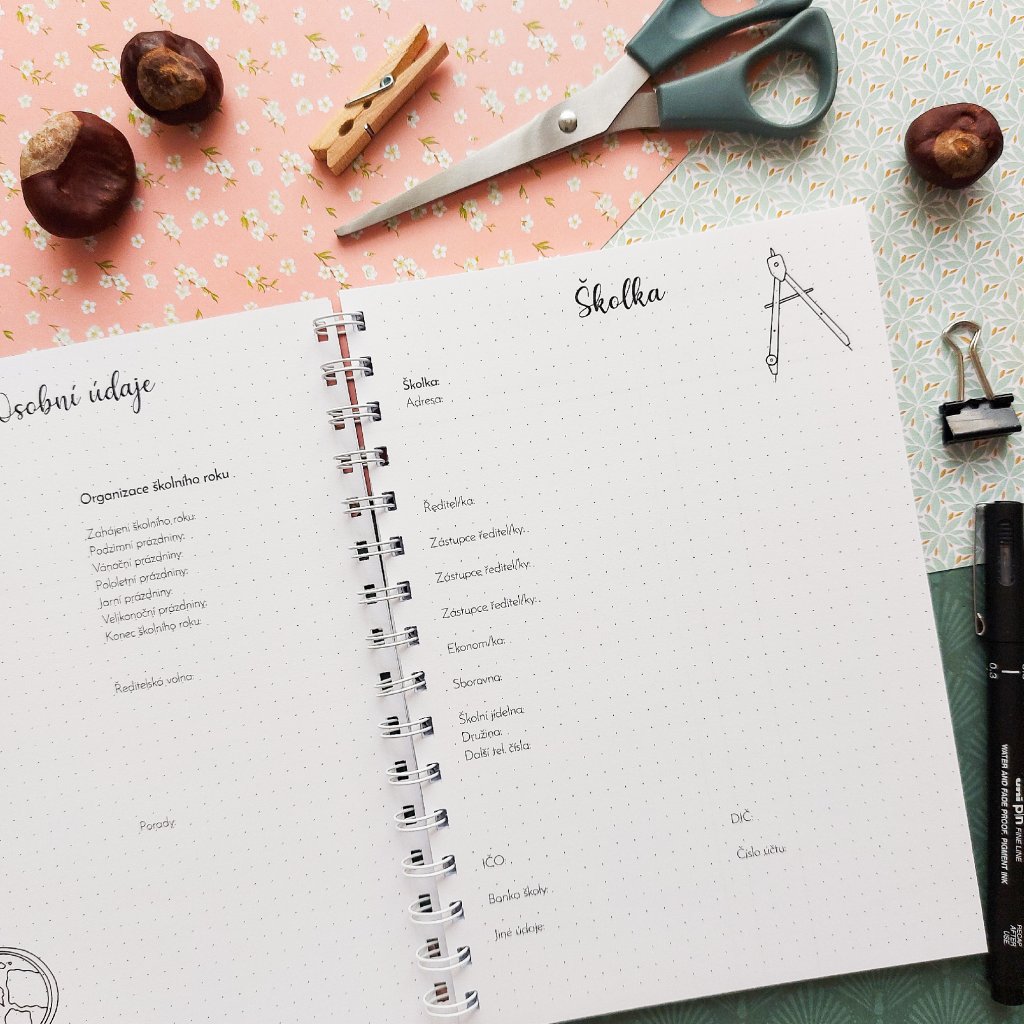 Osobní údaje
Organizace školního roku
Zahájení školního roku:
Podzimní prázdniny:
Vánoční prázdniny:
Pololetní prázdniny:
Jarní prázdniny:
Velikonoční prázdniny:
Konec školního roku:
Ředitelská volna:
Porady:
Školka
Školka:
Adresa:
Ředitel/ka:
Zástupce ředitel/ky:
Zástupce ředitel/ky:
Zástupce ředitel/ky:
Ekonom/ka:
Sborovna:
Školní jídelna:
Družina:
Další tel. čísla:
IČO:
DIČ:
Banka školy:
Číslo účtu:
Jiné údaje:
0.3
uni pin FINE LINE
WATER AND FADE PROOF, PIGMENT INK
RECAP AFTER USE